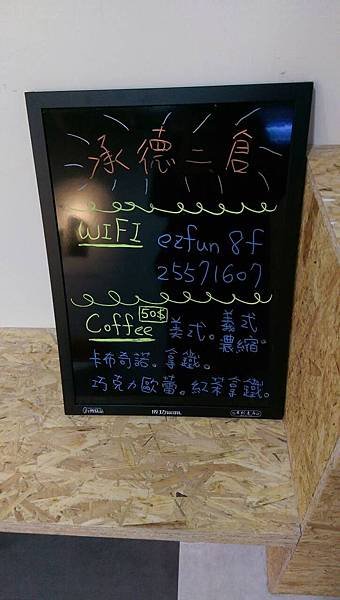 承德二倉
WIFI ezfun 8f
25571607
Coffee 50$ 美式。義式濃縮。
卡布奇諾。拿鐵。
巧克力歐蕾。紅茶拿鐵。